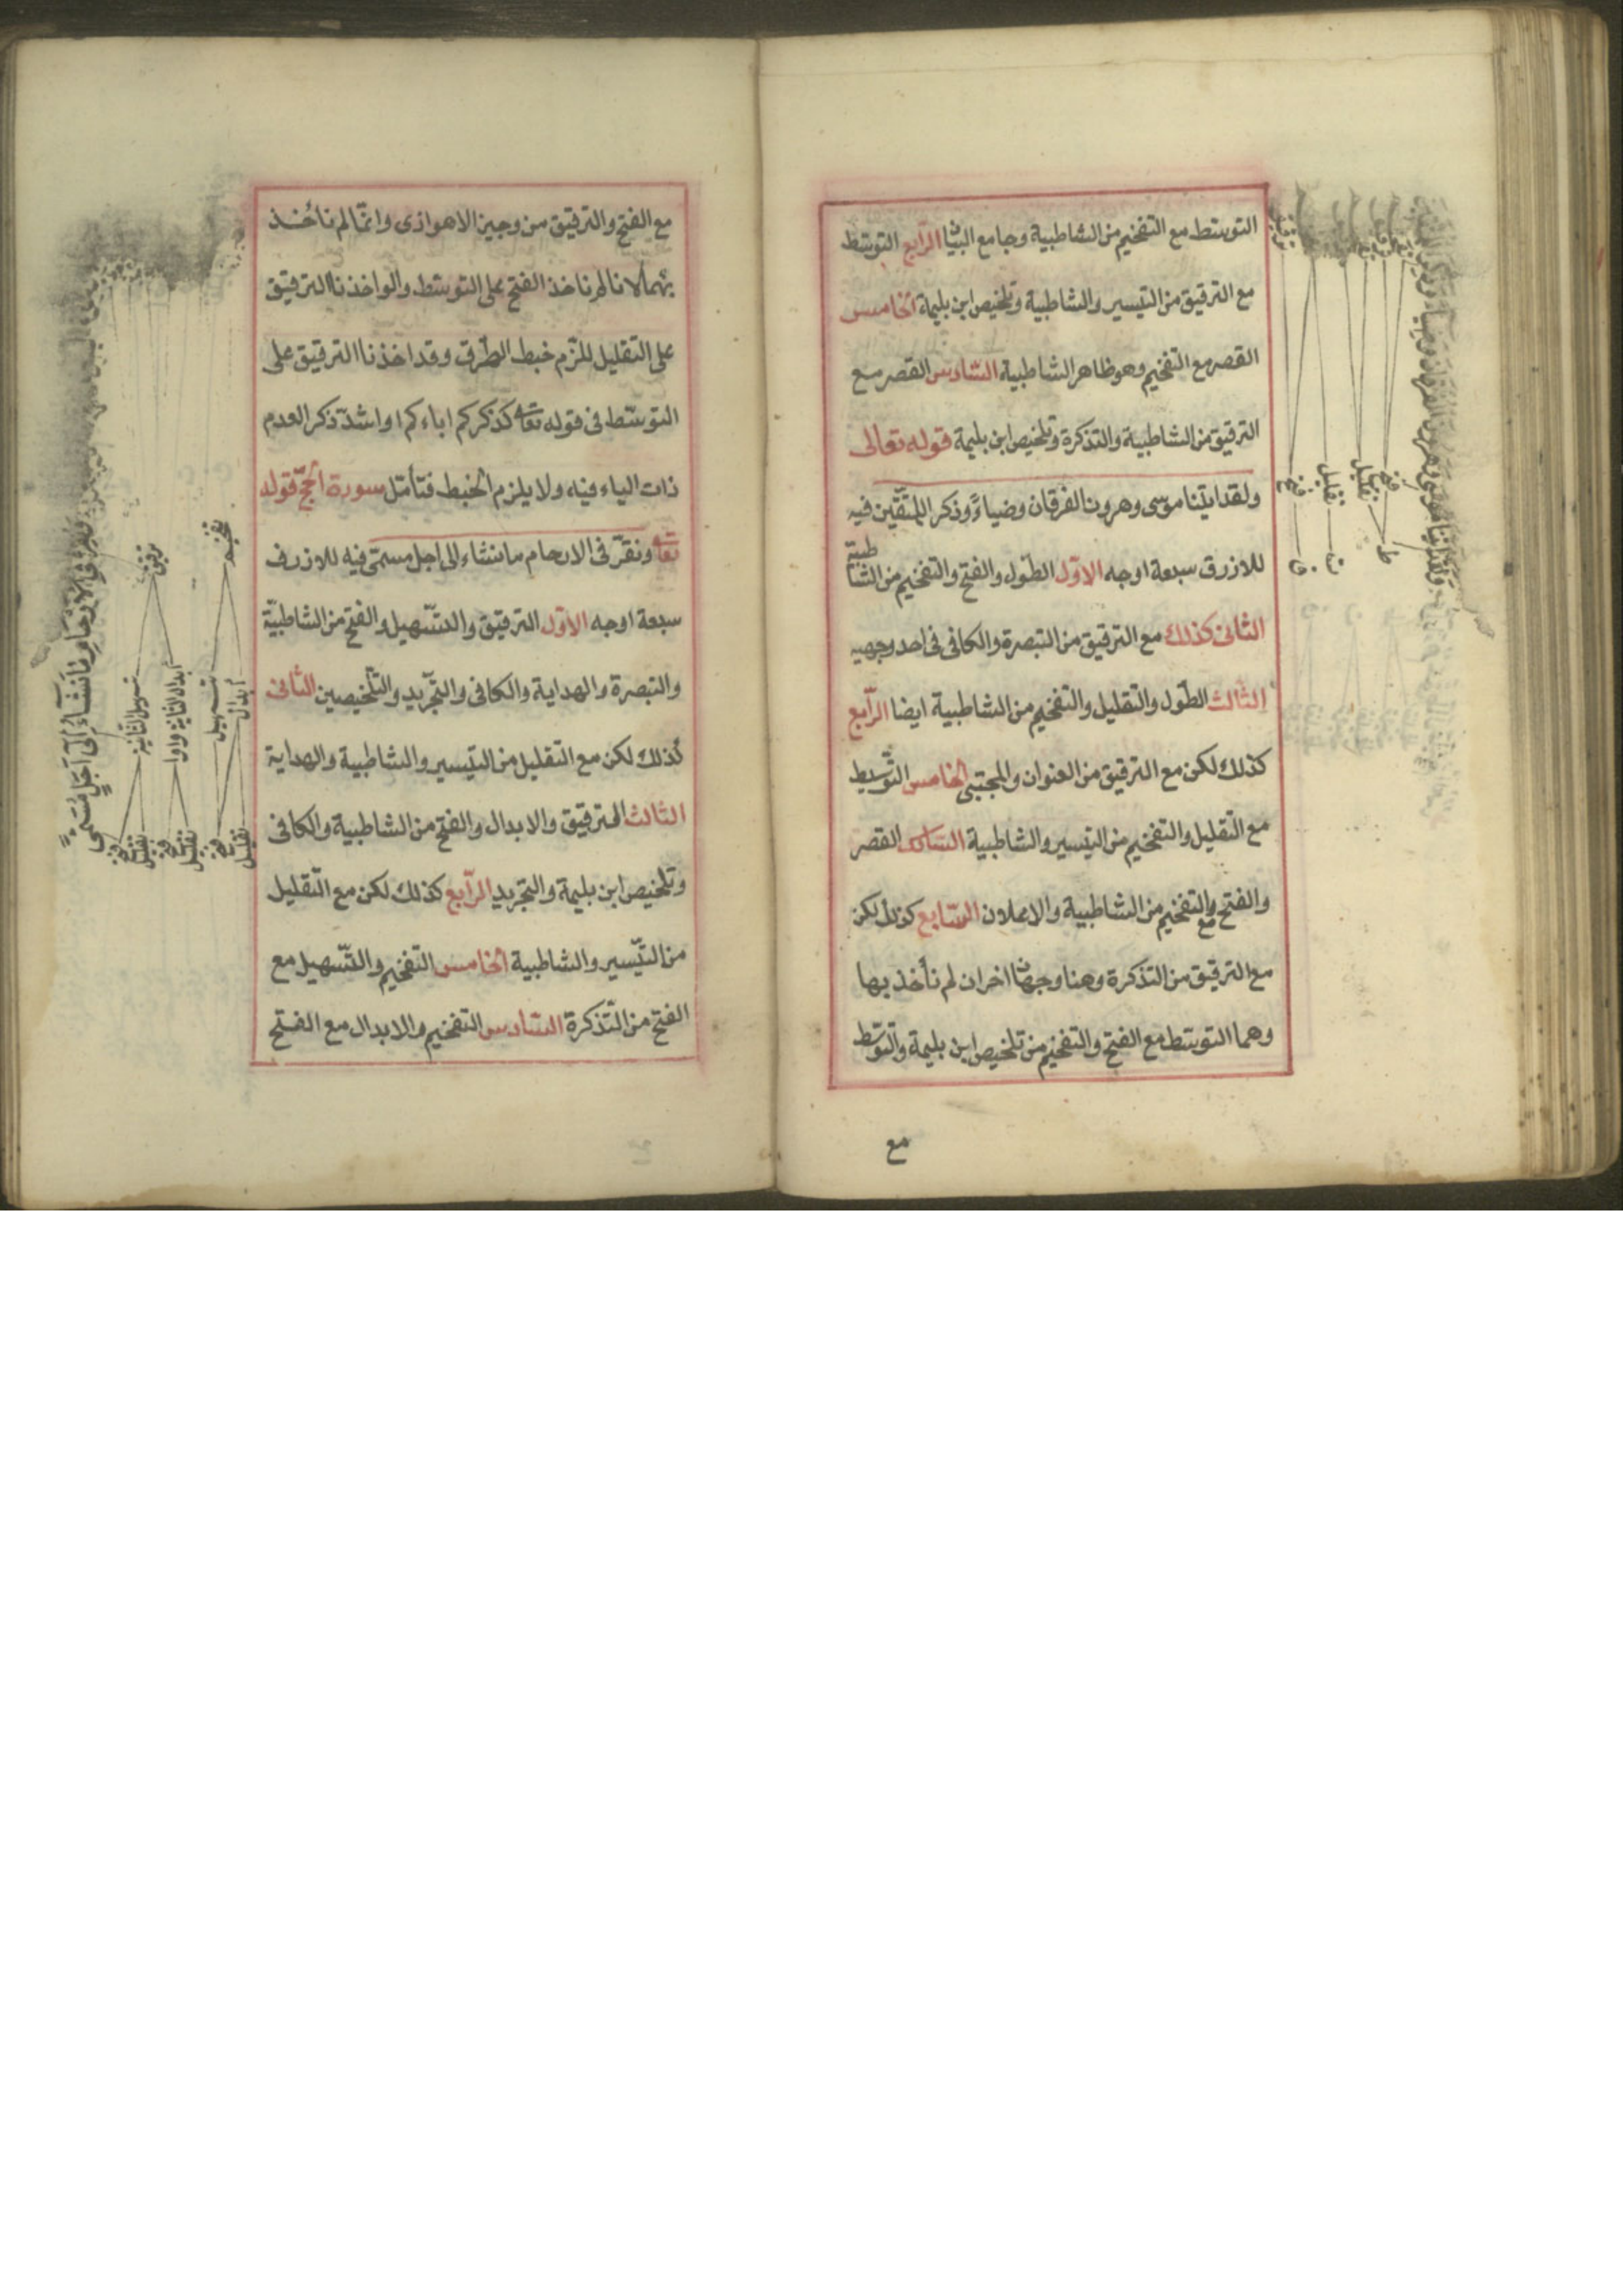 التوسّط مع التفخيم من الشاطبية وجامع البيان الرّابع التوسّط
مع الترقيق من التيسير والشاطبية وتلخيص ابن بليمة الخامس
القصر مع التفخيم وهو ظاهر الشاطبية السّادس القصر مع
الترقيق من الشاطبية والتذكرة وتلخيص ابن بليمة قوله تعالى
ولقد ايتنا موسى وهرون الفرقان وضياءً وذكر المتّقين فيه
للازرق سبعة اوجه الاوّل الطّول والفتح والتفخيم من الشاطبية
الثانى كذلك مع الترقيق من التبصرة والكافى فى احد وجهيه
الثّالث الطّول والتّقليل والتفخيم من الشاطبية ايضا الرّابع
كذلك لكن مع الترقيق من العنوان والمجتبى الخامس التّوسيط
مع التّقليل والتفخيم من التيسير والشاطبية السّادس القصر
والفتح مع والتفخيم من الشاطبية والاعلان السّابع كذلك لكن
مع الترقيق من التذكرة وهنا وجهان اخران لم نأخذ بها
وهما التوسّط مع الفتح والتفخيم من تلخيص ابن بليمة والتوسّط
مع
فتح
تقليل
تقليل
فتح
ق
ت
ط
مع الفتح والترقيق من وجيز الاهوازى وانّما لم نأخذ
بهما لانا لم ناخذ الفتح على التوسّط والو اخذنا الترقيق
على التقليل للزم خبط الطّرق وقد اخذنا الترقيق على
التوسّط فى قوله تعا كذكركم اباءكم او اشدّ ذكر العدم
ذات الياء فيه ولا يلزم الخبط فتأمّل سورة الحجّ قوله
تعا ونقرّ فى الارحام ما نشاء الى اجل مسمّى فيه للازرق
سبعة اوجه الاوّل الترقيق والتّسهيل والفتح من الشاطبيّة
والتبصرة والهداية والكافى والتّجريد والتّلخيصين الثانى
كذلك لكن مع التّقليل من التيسير والشاطبية والهداية
الثالث الترقيق والابدال والفتح من الشاطبية والكافى
وتلخيص ابن بليمة والتجريد الرّابع كذلك لكن مع التّقليل
من التّيسير والشاطبية الخامس التفخيم والتّسهيل مع
الفتح من التّذكرة السّادس التفخيم والابدال مع الفتح
تفخيم
ترقيق
تسهيل
ابدال
ابدال الثانية واوا
تسهيل الثانية
تقليل
فتح
تقليل
فتح
تقليل
فتح
ونقرّ فى الارحام ما نشاء الى اجل مسمّى